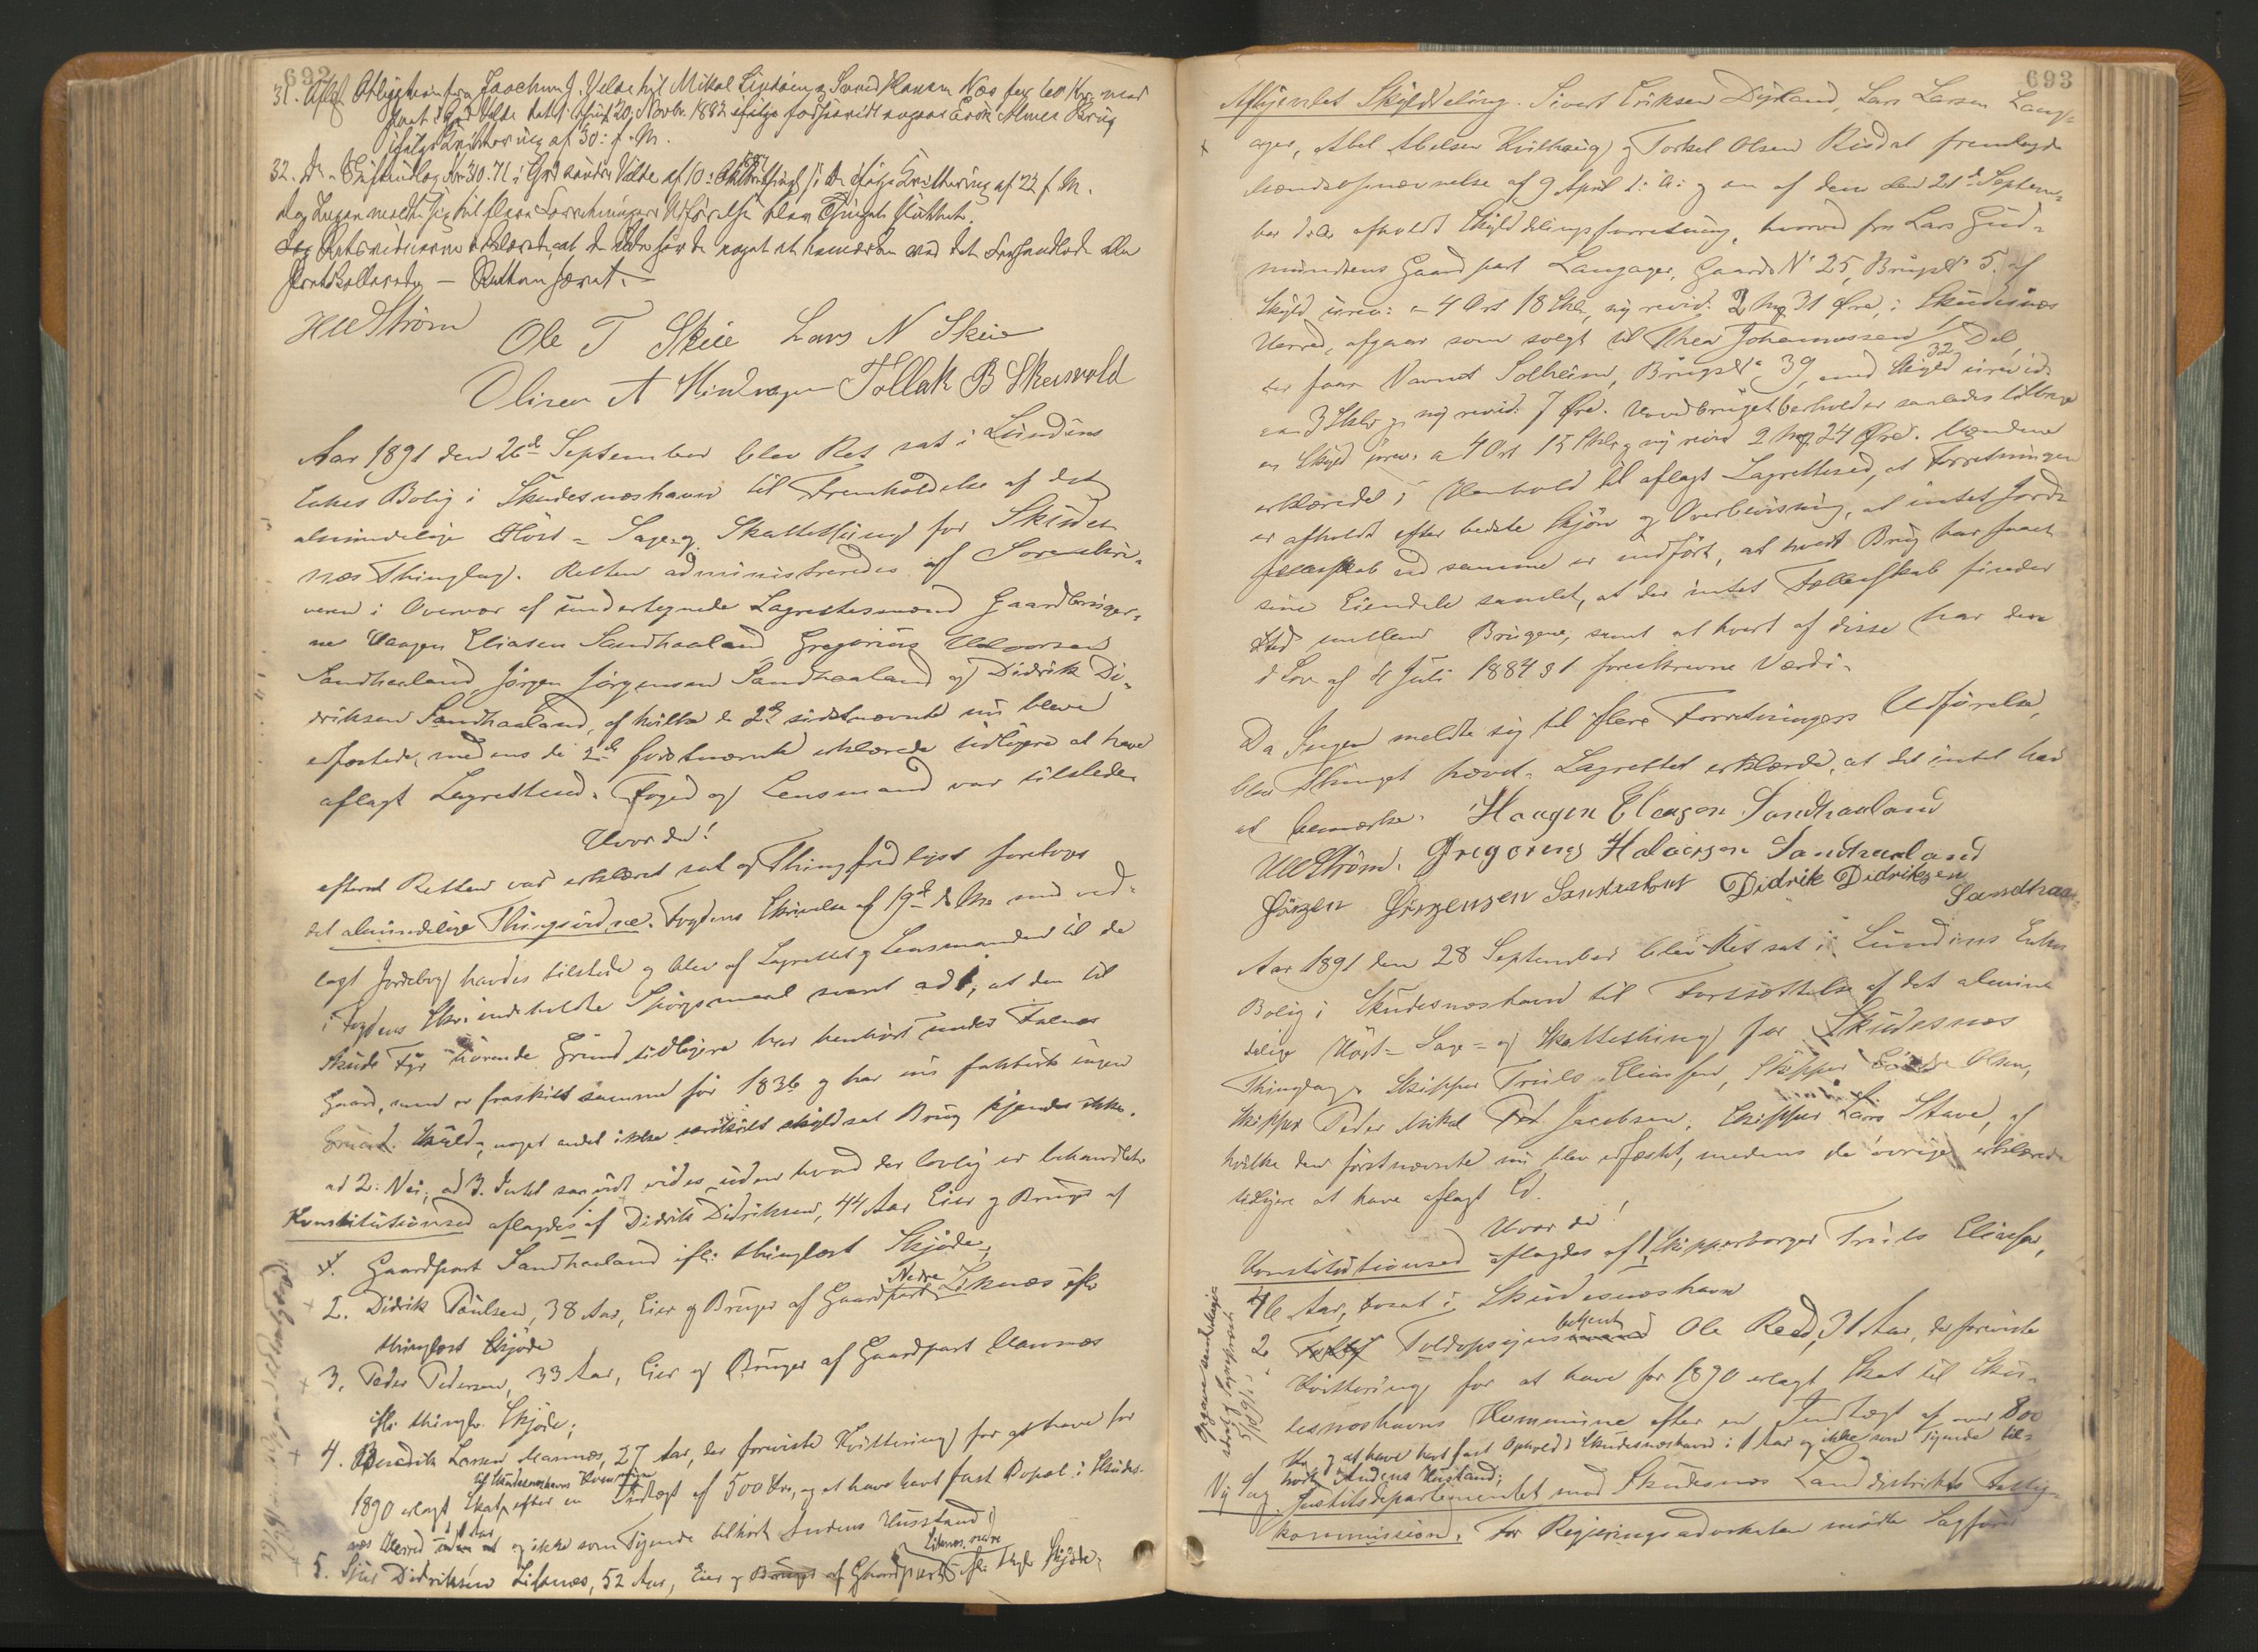 692
31. Aflyst Obligation fra Joachim J. Velde til Mikal
pant i Gnd Velde datert thinglst 20 Novbr. 1882 ifølge
ifølge Kvittering af 30: f. M.
32. Do. Velde af 10: ifølge Kvittering af 22 f. M.
Da Ingen meldte sig til flere Forretningers Udførelse blev Thinget sluttet.
Retsvidnerne erklærede, at de havde noget at bemærke ved det Forhandlede eller
Protokollerede — Retten hævet. —
Strøm Ole T Skeie Lars N Skeie
Olisen A Tollak B Skeisvold
Aar 1891 den 26de September blev Ret sat i Lundens
Enkes Bolig i Skudesnæshavn til Fremholdelse af det
almindelige Høst- Sage- og Skattething for Skudes-
næs Thinglag. Retten administreredes af Sorenskri-
veren i Overvær af undertegnede Lagrettesmænd Gaardbruger-
ne Haagen Eliasen Sandhaaland Gregorius Halvorsen
Sandhaaland, Jørgen Jørgensen Sandhaaland og Didrik Di-
driksen Sandhaaland, af hvilke de 2de sidstnævnte nu bleve
edfæstede, medens de 2de førstnævnte erklærede tidligere at have
aflagt Lagretteed. Foged og Lensmand var tilstede.
Hvorda!
efterat Retten var erklæret sat og Thingfred lyst foretoges
det almindelige Thingsvidne. Fogdens Skrivelse af 19de ds. Ms. med ved-
lagt Jordebog havdes tilstede og blev af Lagrettet og Lensmanden til de
i Fogdens Skr. indeholdte Spørgsmaal svaret ad 1, at den til
Skude Fyr hørende Grund tidligere har henhørt under Falnæs
Gaard, men er fraskilt samme før 1836 og har nu faktisk ingen
Skyld, noget andet ikke særskilt skyldsat Brug kjendes ikke.
ad 2: Nei, ad 3. Intet saavidt vides uden hvad der lovlig er behandlet.
Konstitutionsed aflagdes af Didrik Didriksen, 44 Aar, Eier og Bruger af
1. Gaardpart Sandhaaland ifl. thinglæst Skjøde;
2. Didrik Paulsen, 38 Aar, Eier og Bruger af Gaardpart Nedre Liknæs ifl.
thinglæst Skjøde
3. Peder Pedersen, 33 Aar, Eier og Bruger af Gaardpart
ifl. thingl. Skjøde;
4. Larsen 27 Aar, der foreviste Kvittering for at have for
1890 erlagt Skat til Skudesneshavns Kommune efter en Indtægt af 500 Kr., og at have havt fast Bopæl i Skudes-
næs Herred i 1 Aar og ikke som Tyende tilhørt Andens Husstand;
5. Didriksen Liknæs, 52 Aar, Eier og Bruger af Gaardpart Liknæs nedre ifl. thgl. Skjøde;
693
Afhjemlet Skylddeling. Sivert Eriksen Dyrland, Lars Larsen Lang-
ager, Abel Abelsen Kvilhaug og Torkel Olsen Risdal fremlagde
Mændsopnævnelse af 9 April d: A: og en af dem den 21de Septem-
ber d. A. afholdt Skylddelingsforretning, hvorved fra Lars Gud-
mundsens Gaardpart Langager, Gaards No 25, Brugs No 5. af
Skyld urev: - 4 Ort 18 Skl, ny revid. 2 Mk 31 Øre, i Skudesnæs
Herred, afgaar som solgt til Thea Johannessen 1/32 Del
der faar Navnet Solheim, Brugs No 39, med Skyld urevid.
3 Skl og ny revid. 7 Øre. Hovedbruget beholder saaledes tilbage
en Skyld urev. a 4 Ort 15 Skl. og ny revid 2 Mk 24 Øre. Mændene
erklærede i Henhold til aflagt Lagretteed, at Forretningen
er afholdt efter bedste Skjøn og Overbevisning, at intet Jord-
fællesskab ved samme er indført, at hvert Brug har faaet
sine Eiendele samlet, at der intet Fællesskab finder
Sted mellem Brugene, samt at hvert af disse har den
i Lov af 4 Juli 1884 § 1 foreskrevne Værdi.
Da Ingen meldte sig til flere Forretningers Udførelse,
blev Thinget hævet. Lagrettet erklærede, at det intet har
at bemærke. Haagen Eliasen Sandhaaland
Strøm. Gregorius Halvorsen Sandhaaland
Jørgen Jørgensen Didrik Didriksen
Sandhaa-
Aar 1891 den 28 September blev Ret sat i Lundens Enkes
Bolig i Skudesnæshavn til Fortsættelse af det almin-
delige Høst- Sage- og Skattething for Skudesnæs
Thinglag. Skipper Truls Eliassen, Skipper Olsen,
Skipper Peder Mikal Jacobsen, Skipper Lars Stave, af
hvilke den førstnævnte nu blev edfæstet, medens de øvrige erklærede
tidligere at have aflagt Ed.
Hvorda!
Konstitutionsed aflagdes af 1, Skipperborger Truls Eliassen,
46 Aar, bosat i Skudesnæshavn
2 Toldopsynsbetjent Ole Red, 31 Aar, der foreviste
Kvittering for at have for 1890 erlagt Skat til Sku-
desnæshavns Kommune efter en Indtægt af over 800
Kr og at have havt fast Ophold i Skudesnæshavn i 1 Aar og ikke som Tyende til-
hørt Andens Husstand;
Ny Sag Justitsdepartementet mod Skudesnæs Landdistrikts Fattig-
kommission. For Regjeringsadvokaten mødte Sagfører